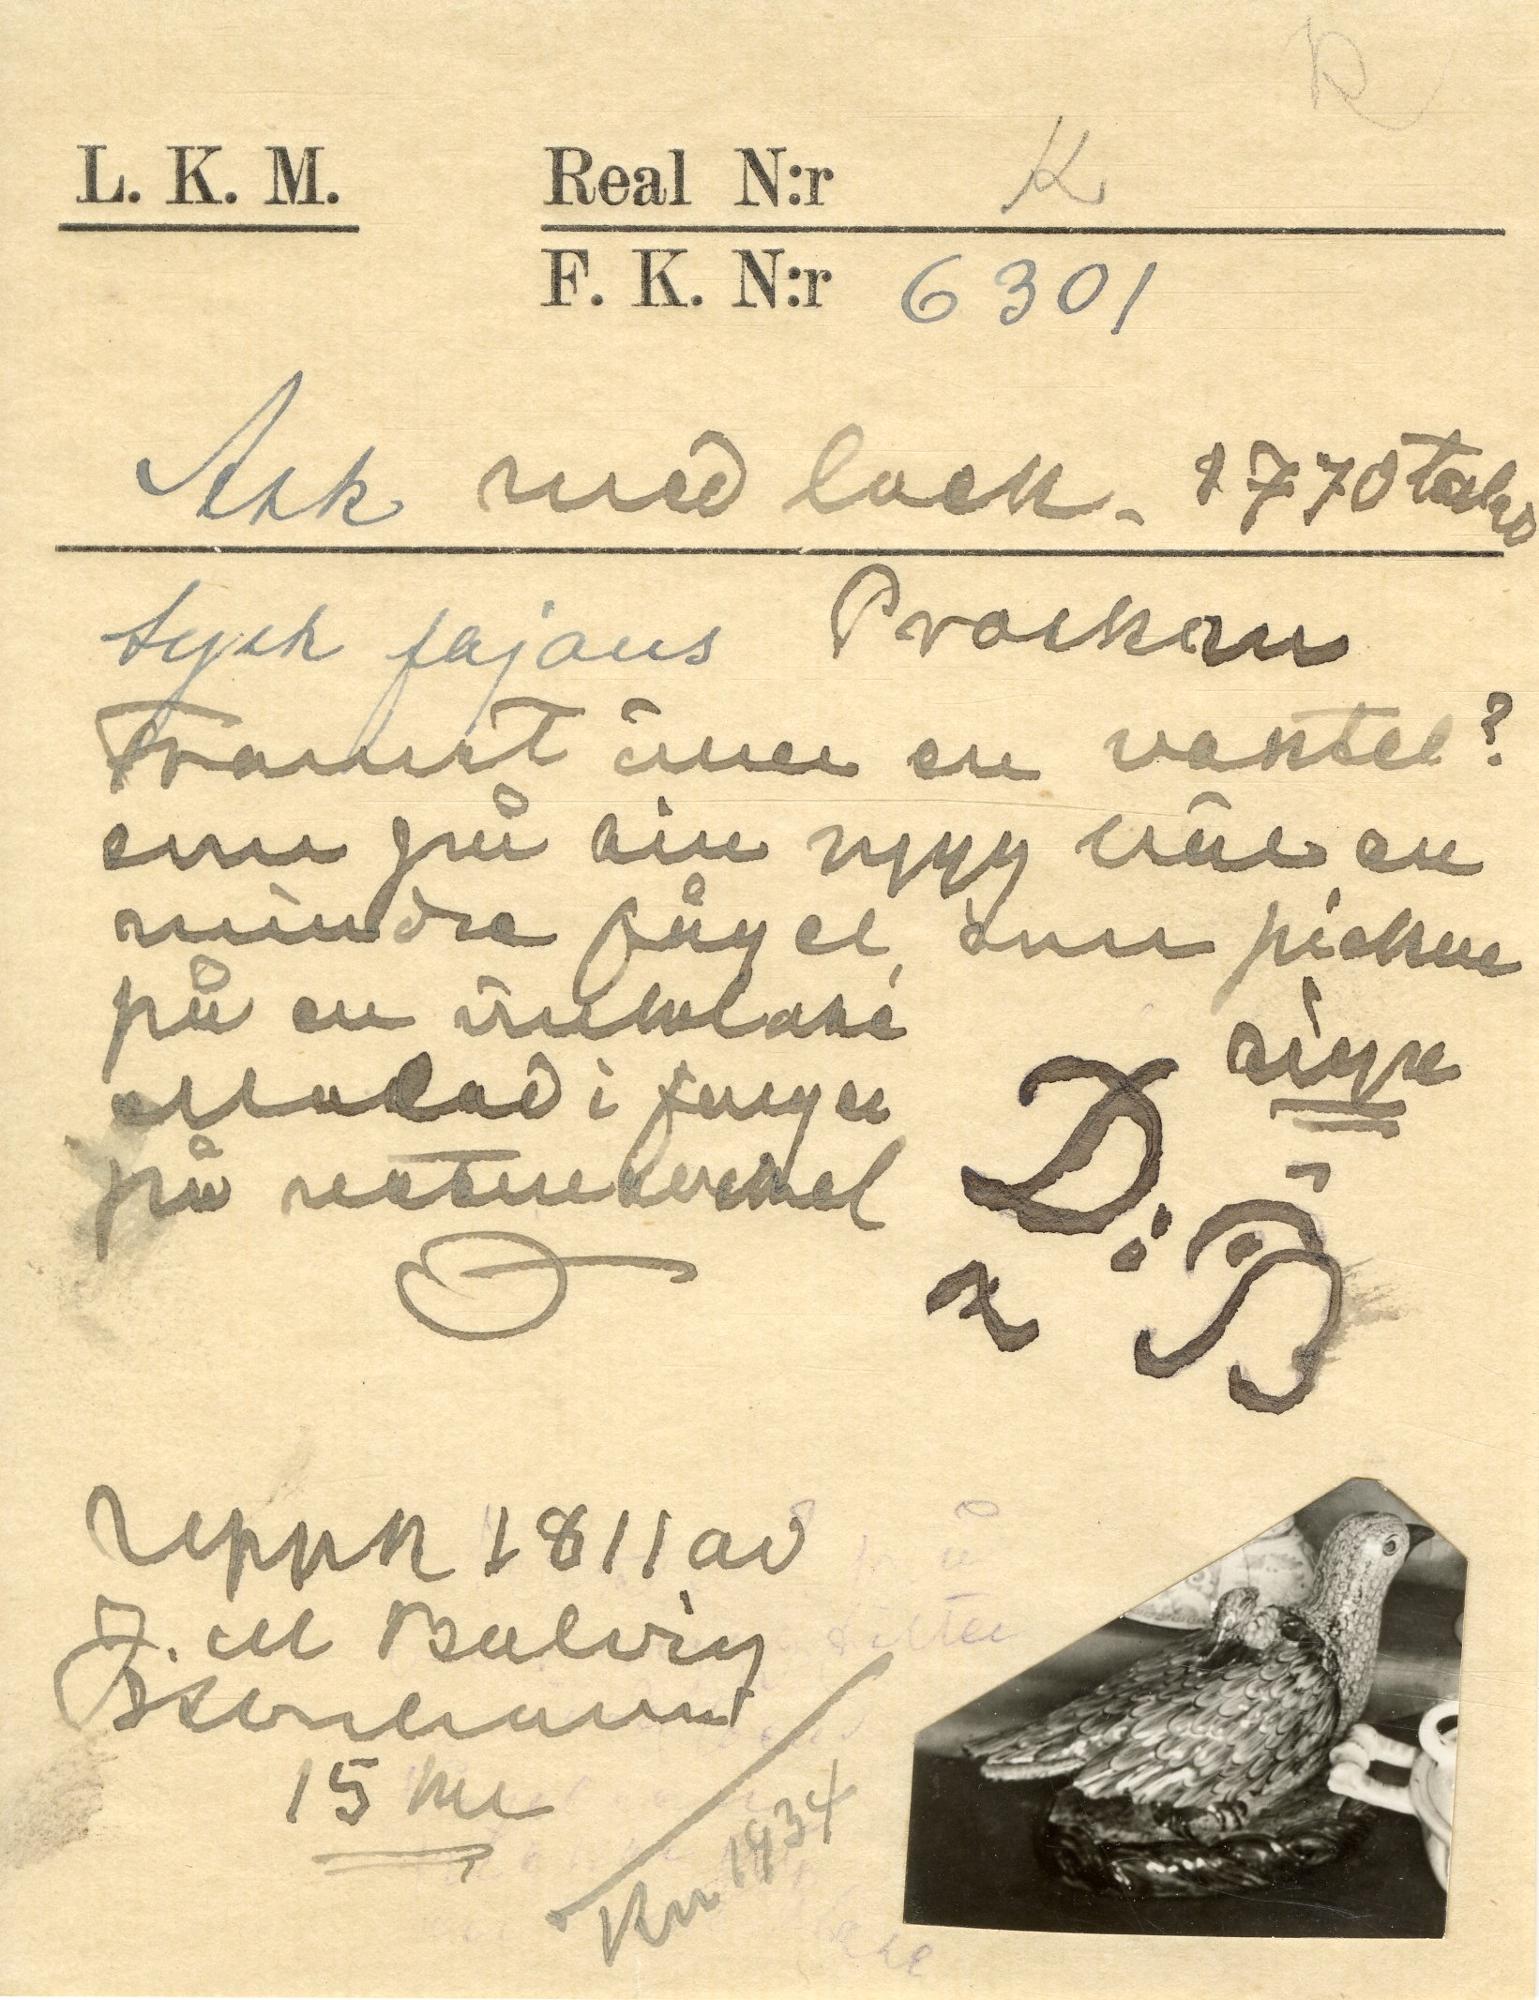 R
L. K. M. Real N:r K
F. K. N:r 6301
Ask med lock. 1770 talo
tysk fajans Proskau
Framst över en vaktel?
som på sin rygg bär en
mindre fågel, som pickar
på en
målad i färger
på naturenkel
sign
D:P
reppk 1811 av
J. M Balvig
15 kr
Kn 1934